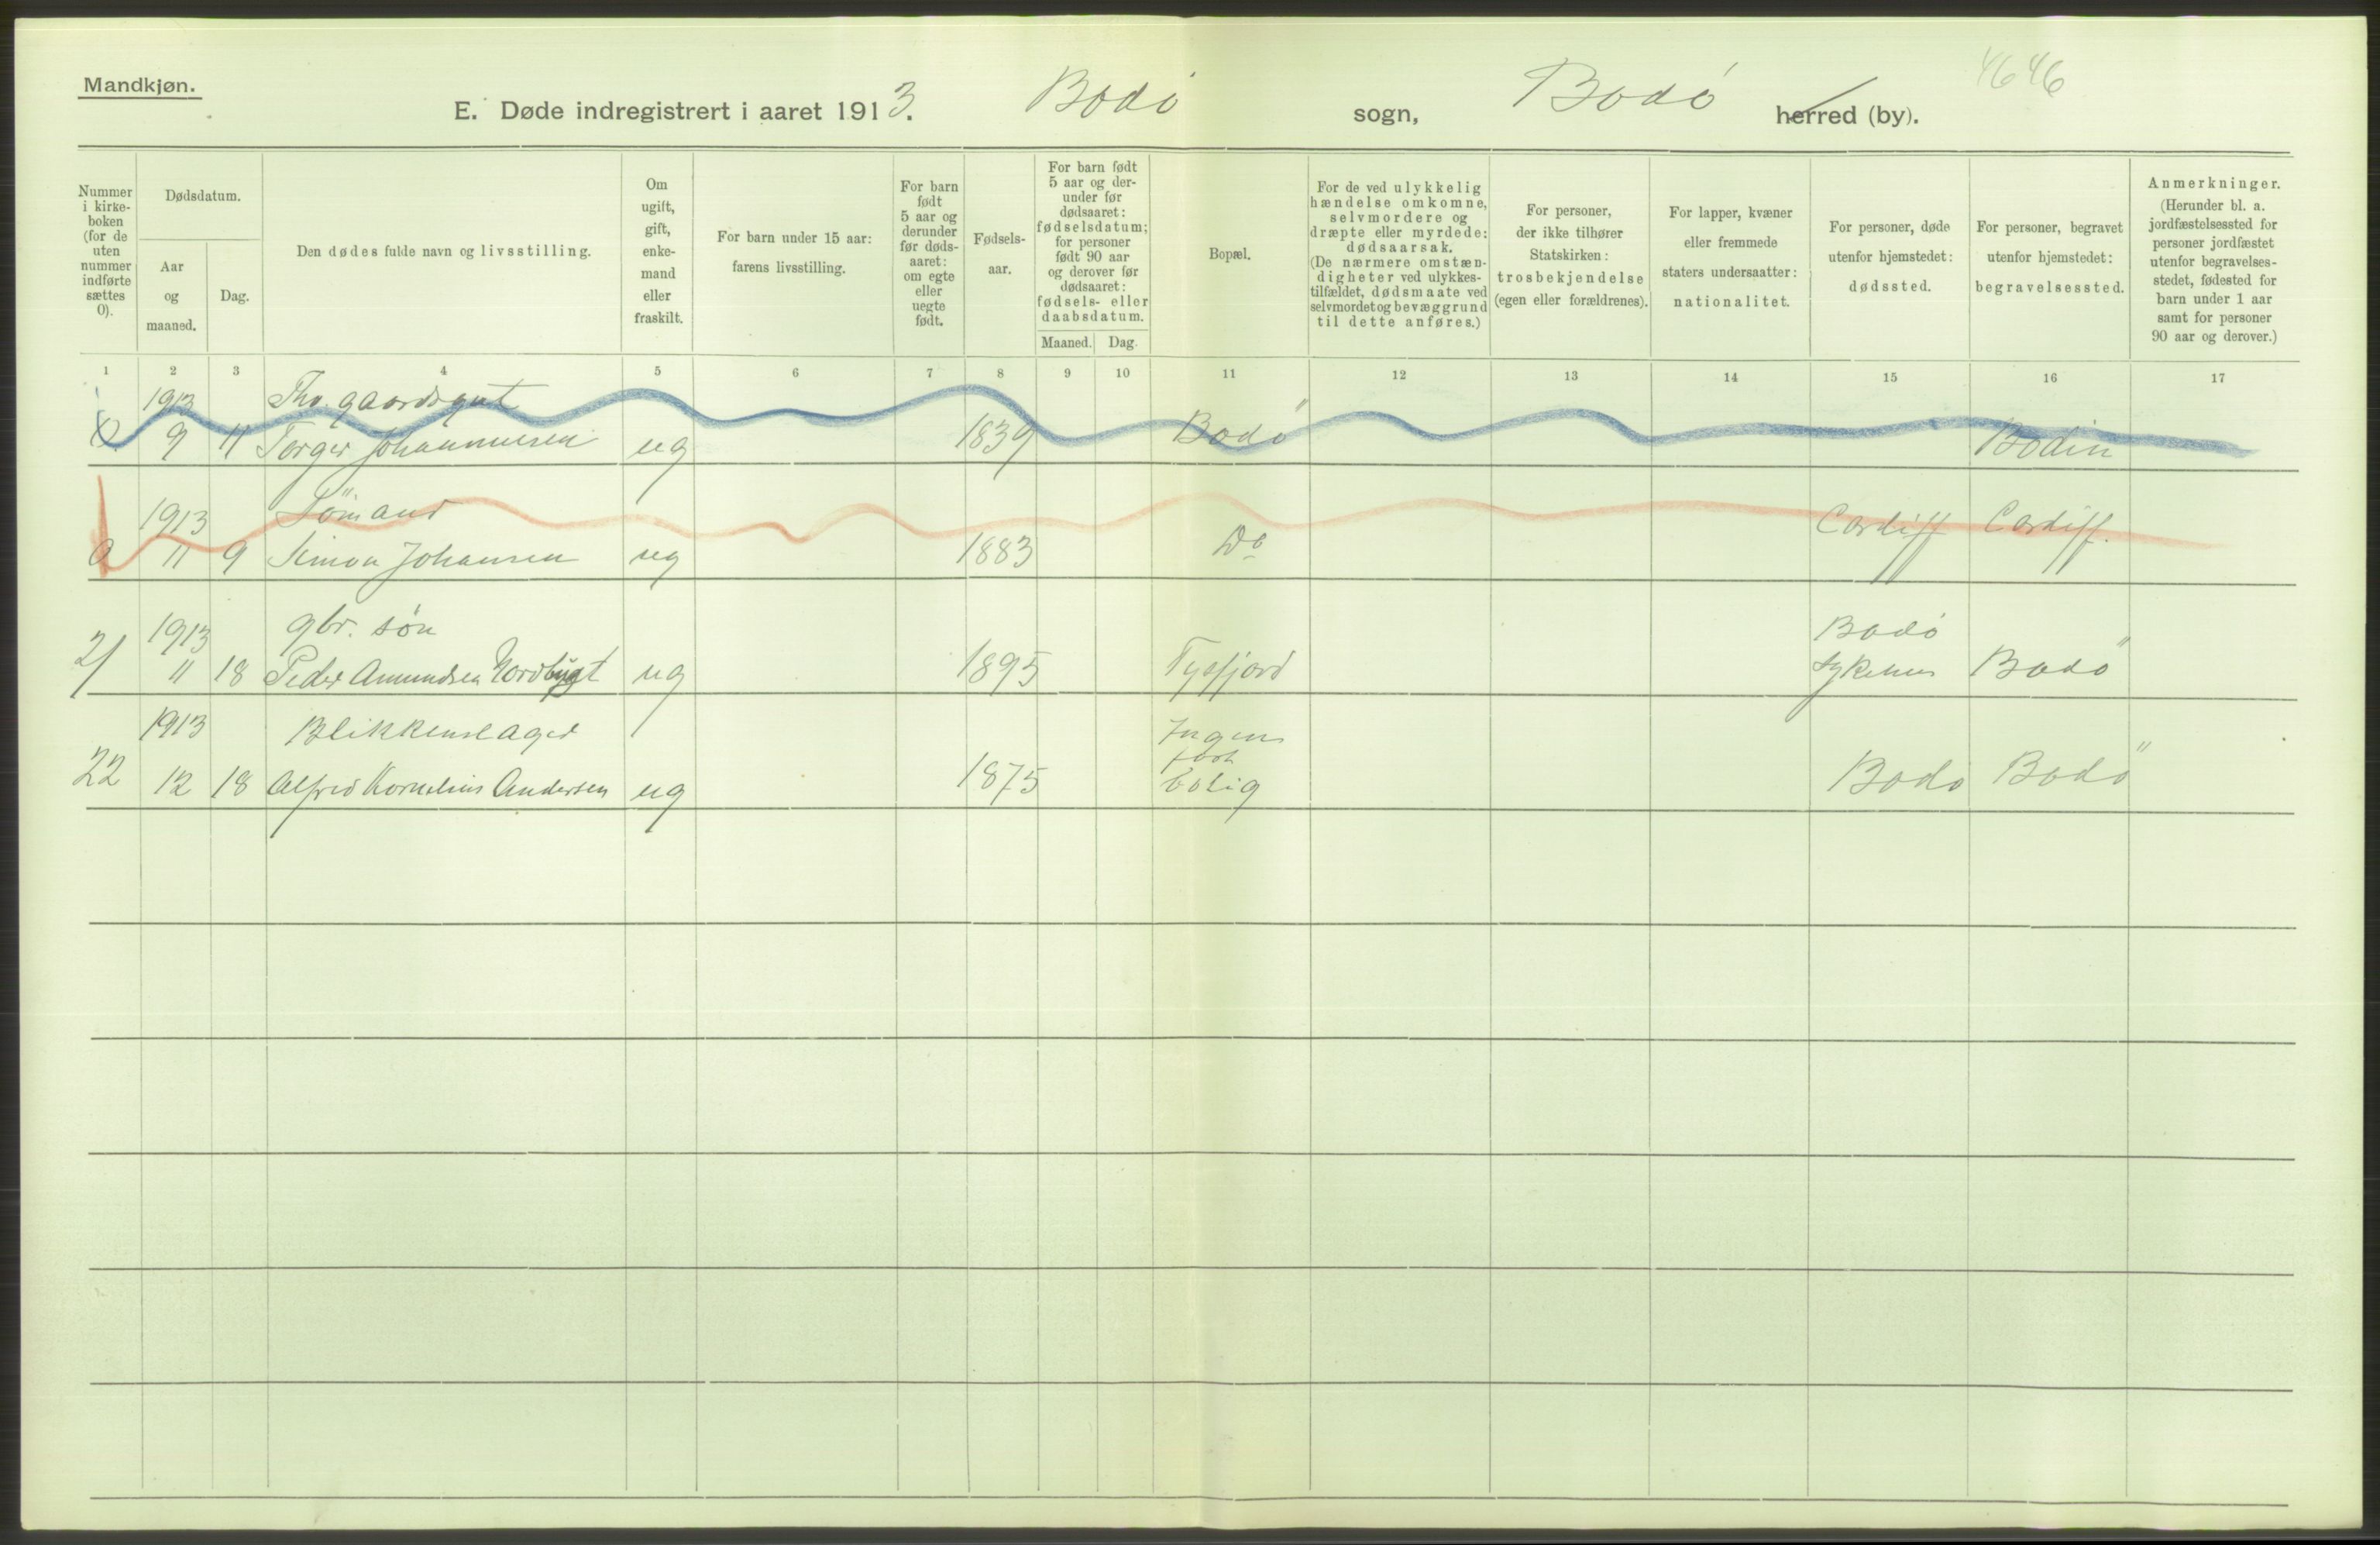 Mandkjøn.
4646
E. Døde indregistrert i aaret 1913. Bodø sogn, Bodø herred (by).
Nummer i kirke-boken (for de uten nummer indførte sættes 0).
Dødsdatum.
Aar og maaned.
Dag.
Den dødes fulde navn og livsstilling.
Om ugift, gift, enke-mand eller fraskilt.
For barn under 15 aar: farens livsstilling.
For barn født 5 aar og derunder før døds-aaret: om egte eller uegte født.
Fødsels-aar.
For barn født 5 aar og der-under før dødsaaret: fødselsdatum; for personer født 90 aar og derover før dødsaaret: fødsels- eller daabsdatum.
Maaned. Dag.
Bopæl.
For de ved ulykkelig hændelse omkomne, selvmordere og dræpte eller myrdede: dødsaarsak. (De nærmere omstæn-digheter ved ulykkes-tilfældet, dødsmaate ved selvmordet og bevæggrund til dette anføres.)
For personer, der ikke tilhører Statskirken: trosbekjendelse (egen eller forældrenes).
For lapper, kvæner eller fremmede staters undersaatter: nationalitet.
For personer, døde utenfor hjemstedet: dødssted.
For personer, begravet utenfor hjemstedet: begravelsessted.
Anmerkninger. (Herunder bl. a. jordfæstelsessted for personer jordfæstet utenfor begravelses-stedet, fødested for barn under 1 aar samt for personer 90 aar og derover.)
1 2 3 4 5 6 7 8 9 10 11 12 13 14 15 16 17
1913 gaardsgut
0 9 11 Torger Johannesen ug 1839 Bodø Bodin
1913 Sømand
0 11 9 Simon Johansen ug 1883 Do Cardiff Cardiff.
1913 gbr. søn Bodø
21 11 18 Peder Amundsen Nordbugt ug 1895 Tysfjord Sykehus Bodø
1913 Blikkenslager Ingen
fast
22 12 18 Alfred Kornelius Andersen ug 1875 bolig Bodø Bodø